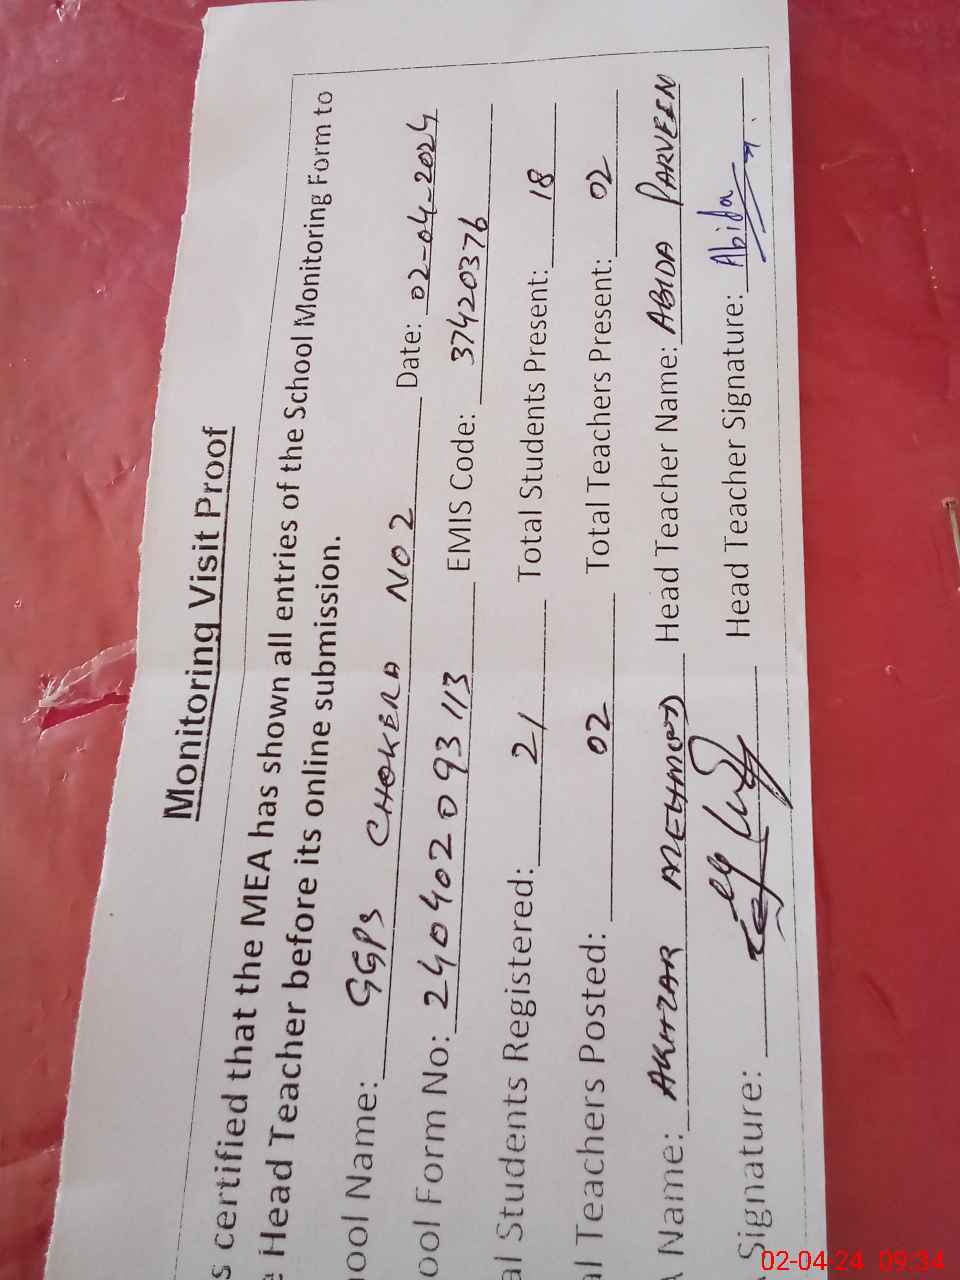 Monitoring Visit Proof
s certified that the MEA has shown all entries of the School Monitoring Form to
e Head Teacher before its online submission.
ool Name: GGPS CHOKERA NO 2 Date: 02-04-2024
ool Form No: 240402093113 EMIS Code: 37420376
al Students Registered: 21 Total Students Present: 18
al Teachers Posted: 02 Total Teachers Present: 02
A Name: AKHZAR MEHMOOD Head Teacher Name: ABIDA PARVEEN
Signature: Head Teacher Signature: Abida
02-04-24 09:34